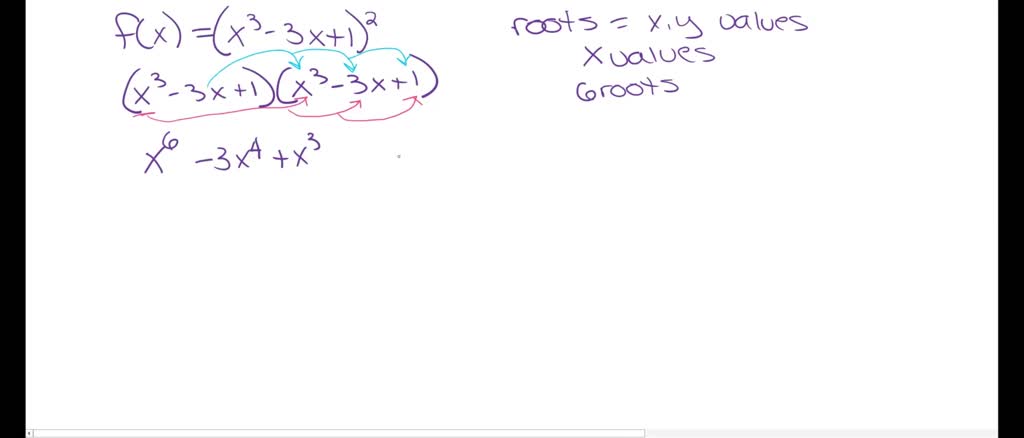 f(x) = (x³ - 3x + 1)²
(x³ - 3x + 1)(x³ - 3x + 1)
x⁶ - 3x⁴ + x³
roots = x, y values
x values
6 roots